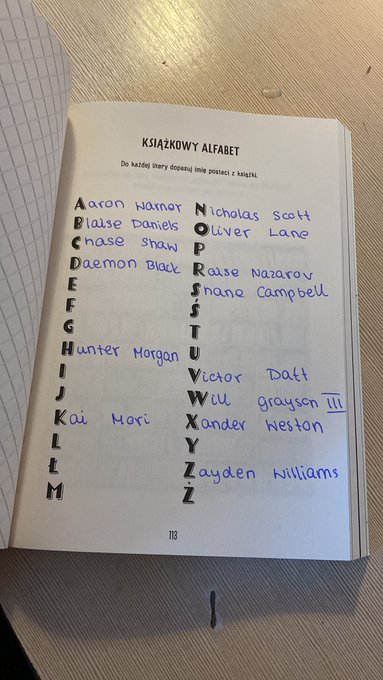 KSIĄŻKOWY ALFABET
Do każdej litery dopasuj imię postaci z książki.
Aaron Warner
Blaise Daniels
Chase Shaw
Daemon Black
E
F
G
Hunter Morgan
I
J
Kai Mori
L
Ł
M
Nicholas Scott
Oliver Lane
P
Raise Nazarov
Shane Campbell
Ś
T
U
Victor Datt
Will grayson III
Xander Weston
Y
Zayden Williams
Ż
113